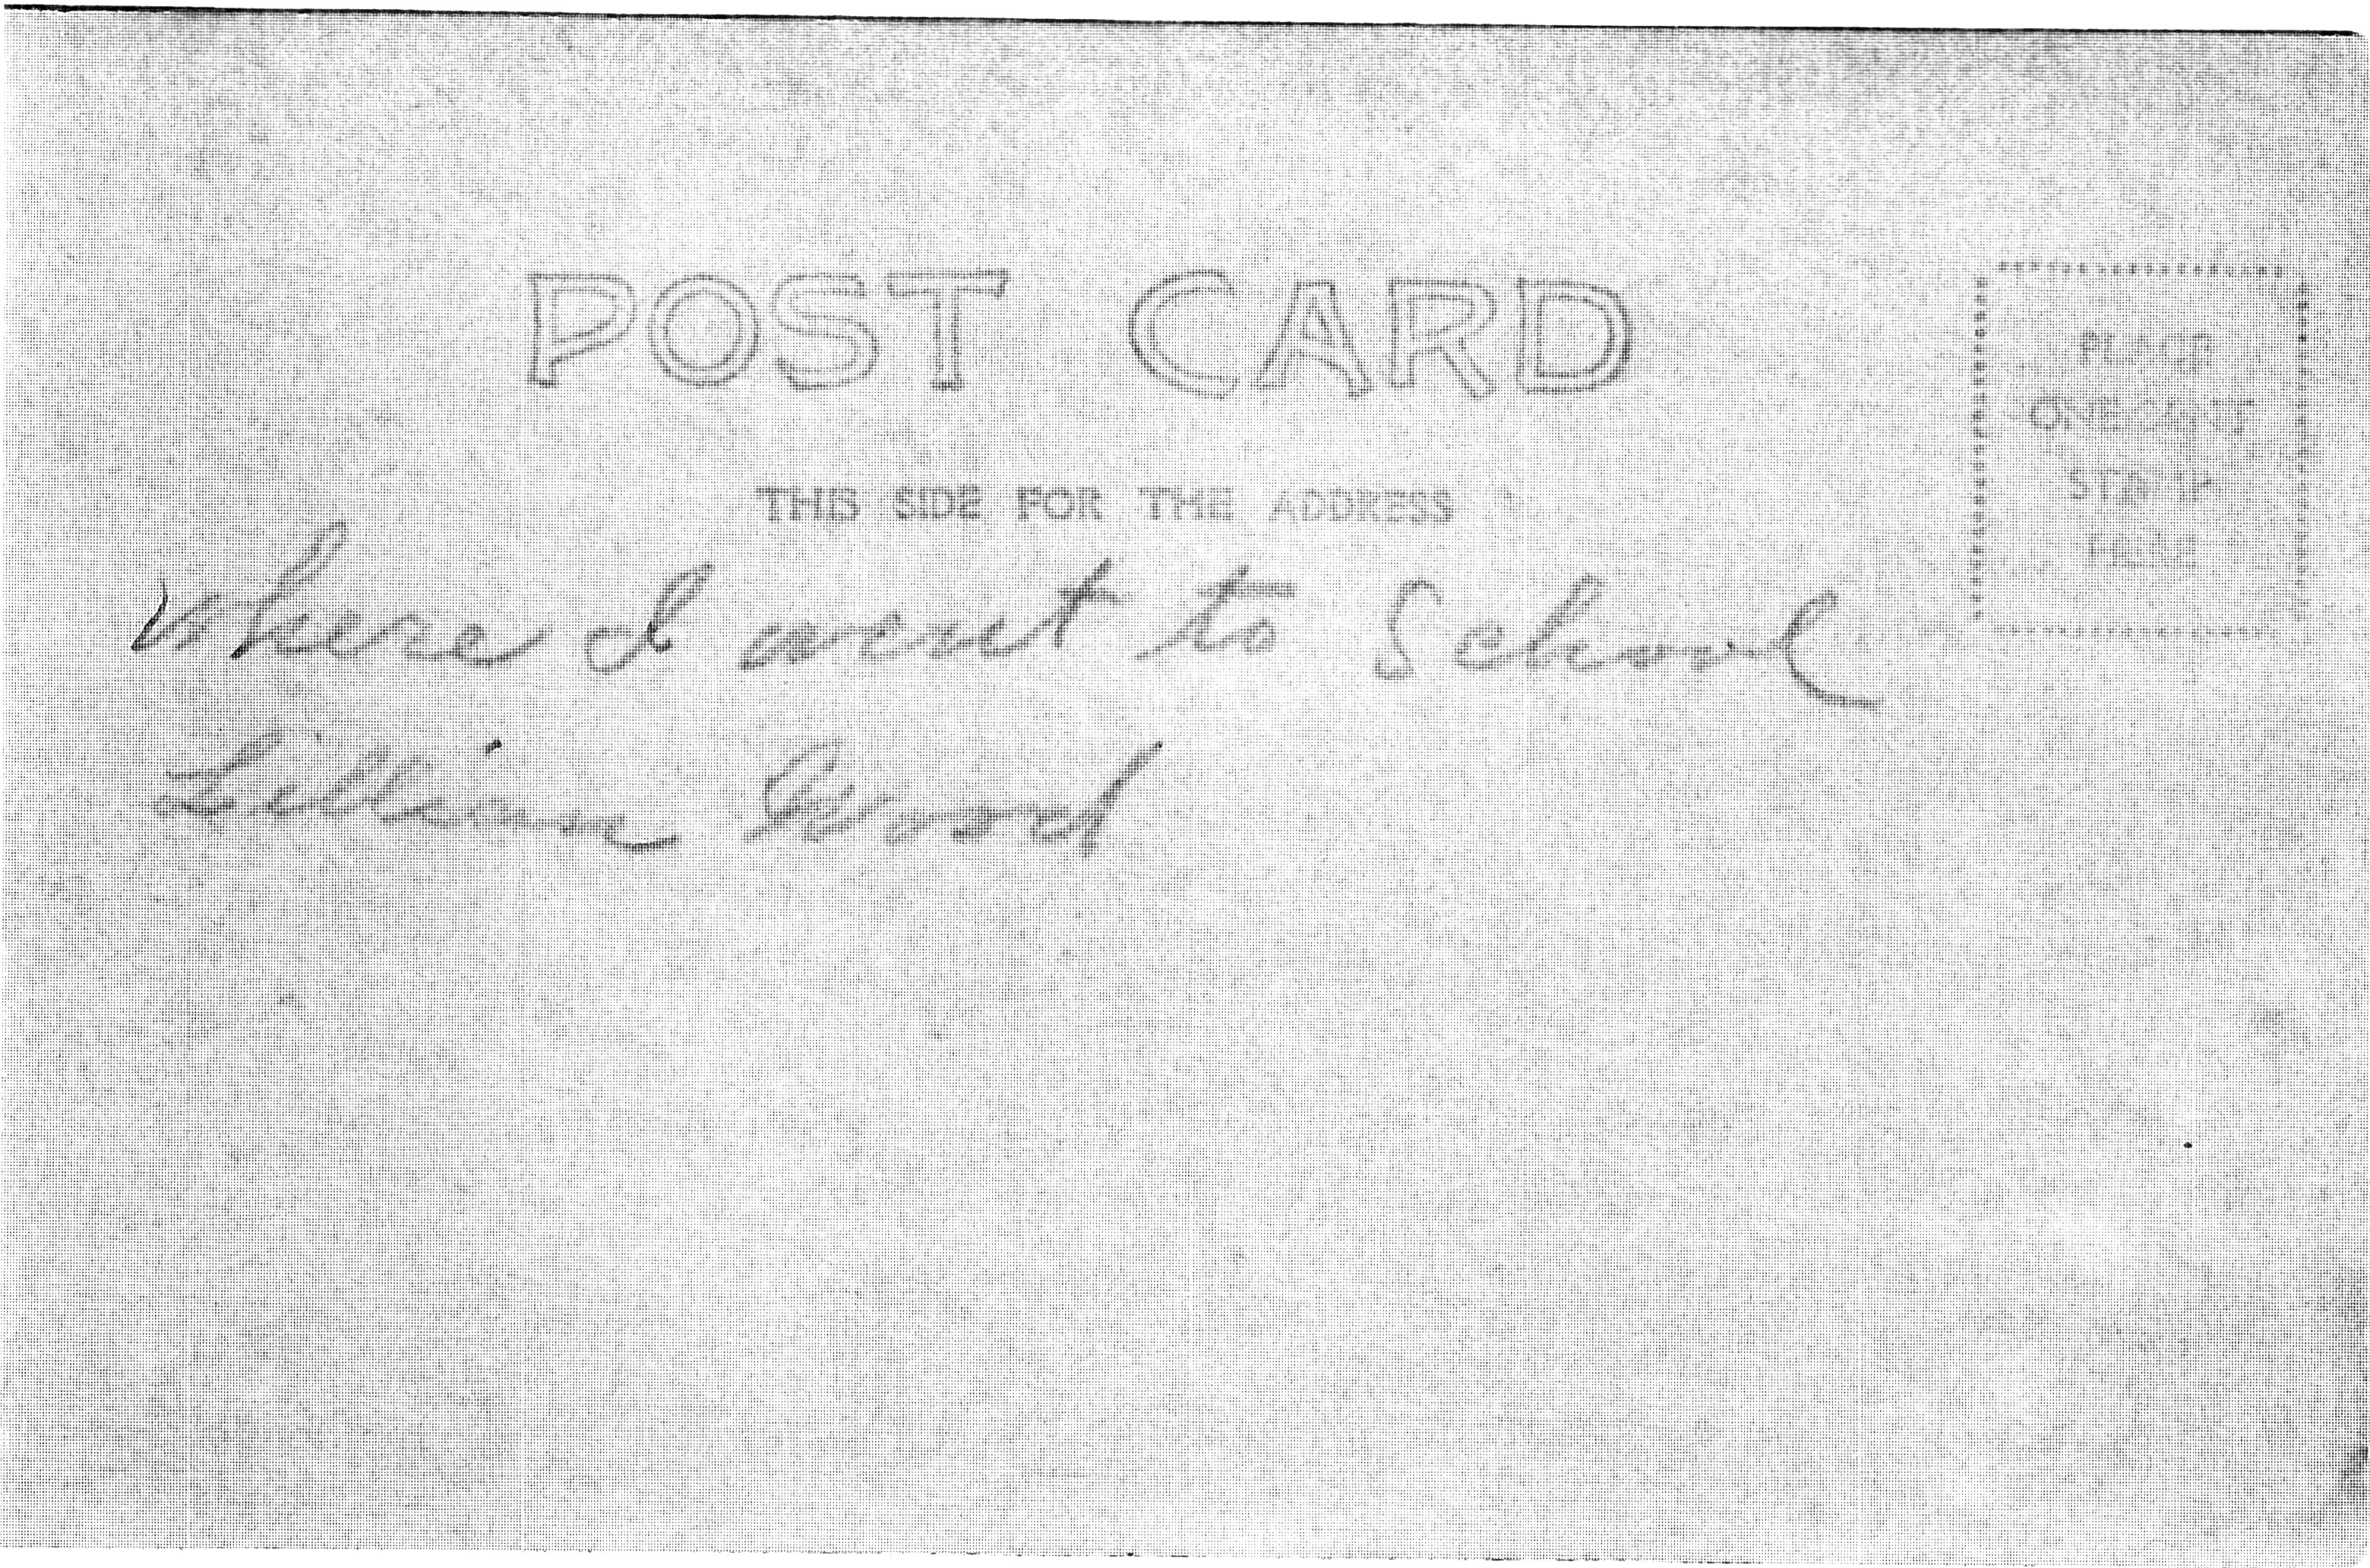 POST CARD
PLACE
ONE CENT
STAMP
HERE
THIS SIDE FOR THE ADDRESS
Where I went to School
Lillian Wood